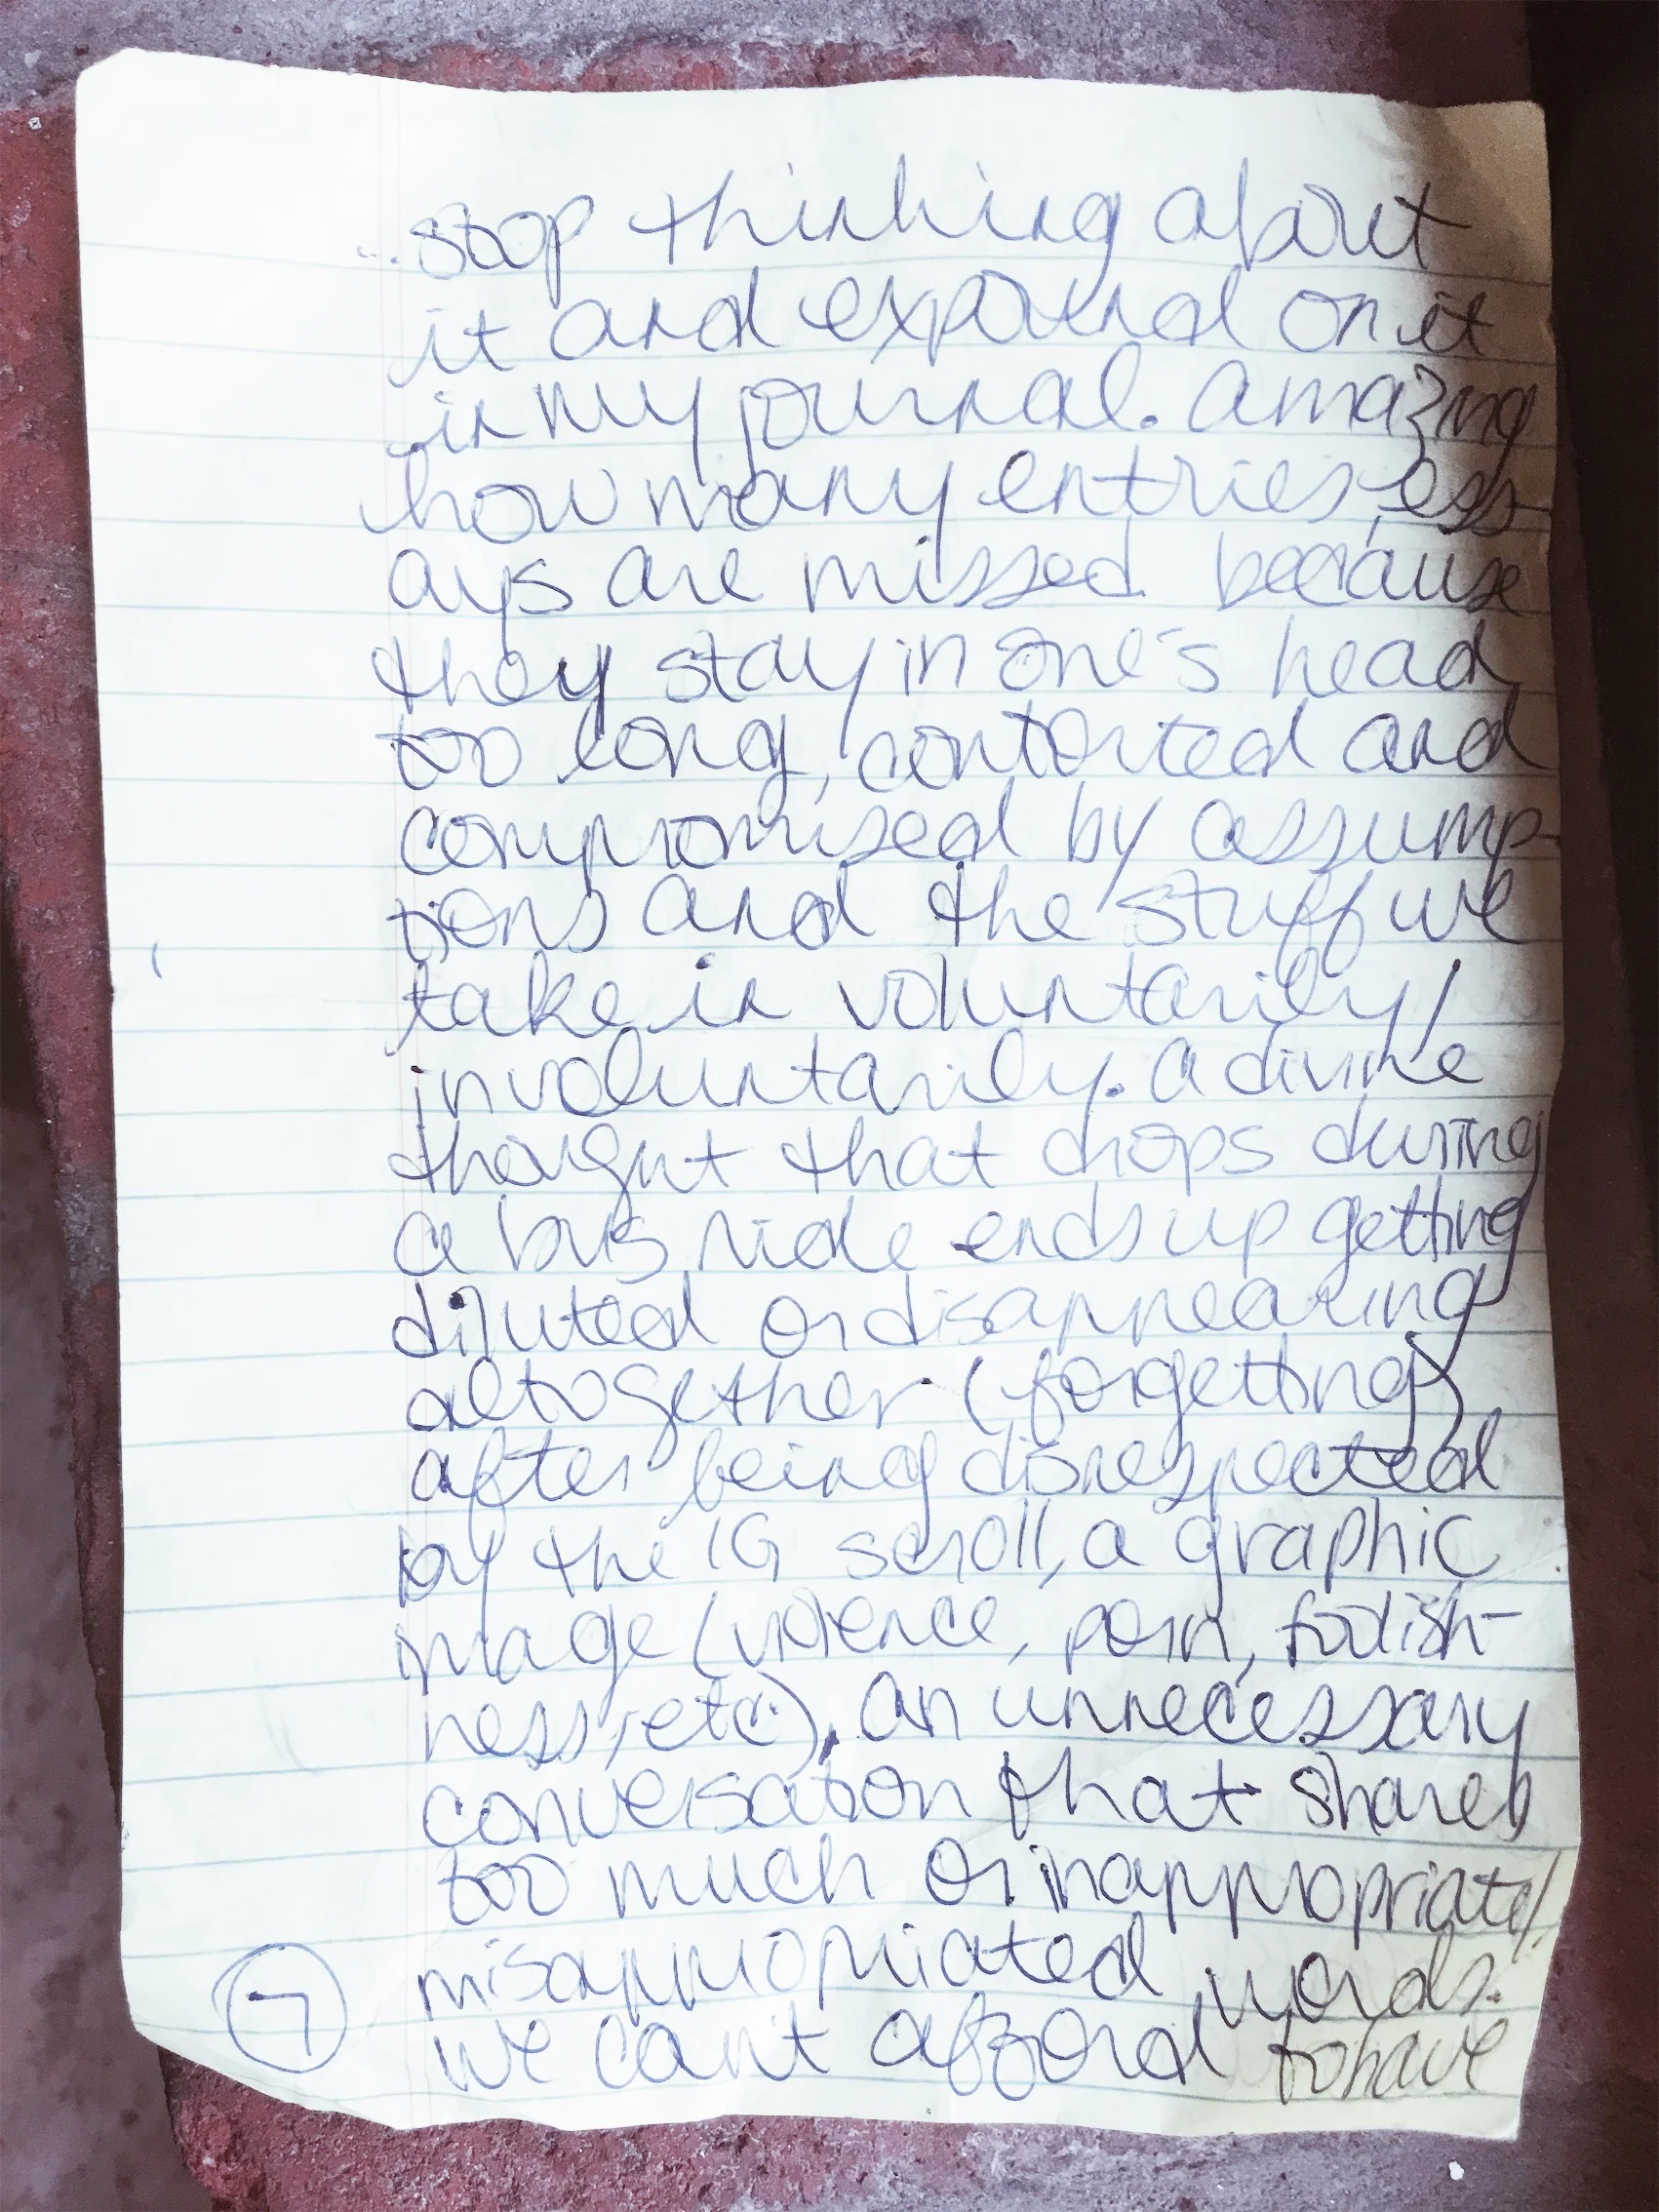 ...stop thinking about
it and expound on it
in my journal. amazing
how many entries, ess-
ays are missed because
they stay in one's head
too long, contorted and
compromised by assump-
tions and the stuff we
take in voluntarily/
involuntarily. a divine
thought that drops during
a bus ride ends up getting
diluted or disappearing
altogether (forgetting)
after being disrespected
by the IG scroll, a graphic
image (violence, porn, foolish-
ness, etc), an unnecessary
conversation that shared
too much or inappropriate/
misappropriated words.
we can't afford to have
7